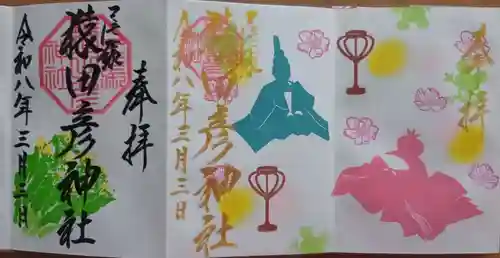 奉拝
猿田彦神社
令和八年三月三日
奉拝
猿田彦神社
令和八年三月三日